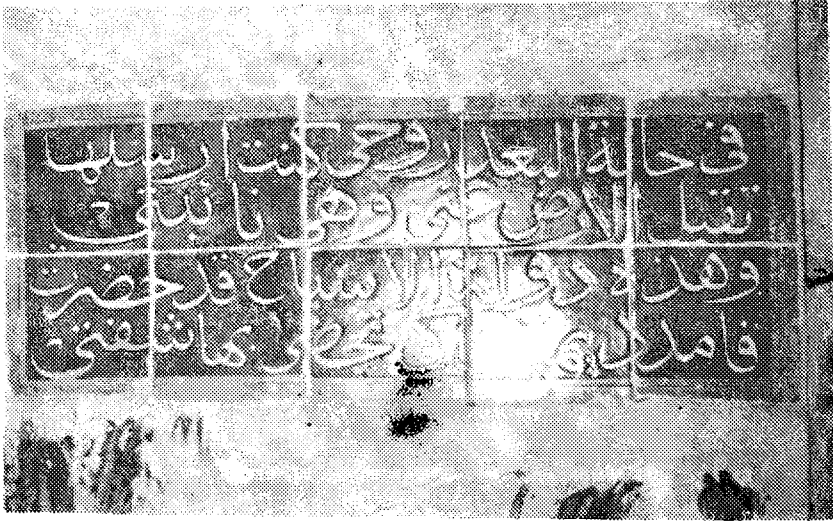 فى حالة البعد روحى كنت ارسلها
تقبل الارض عنى وهى نائبتى
وهذه دولة الاشباح قد حضرت
فامدد تحظى بها شفتى